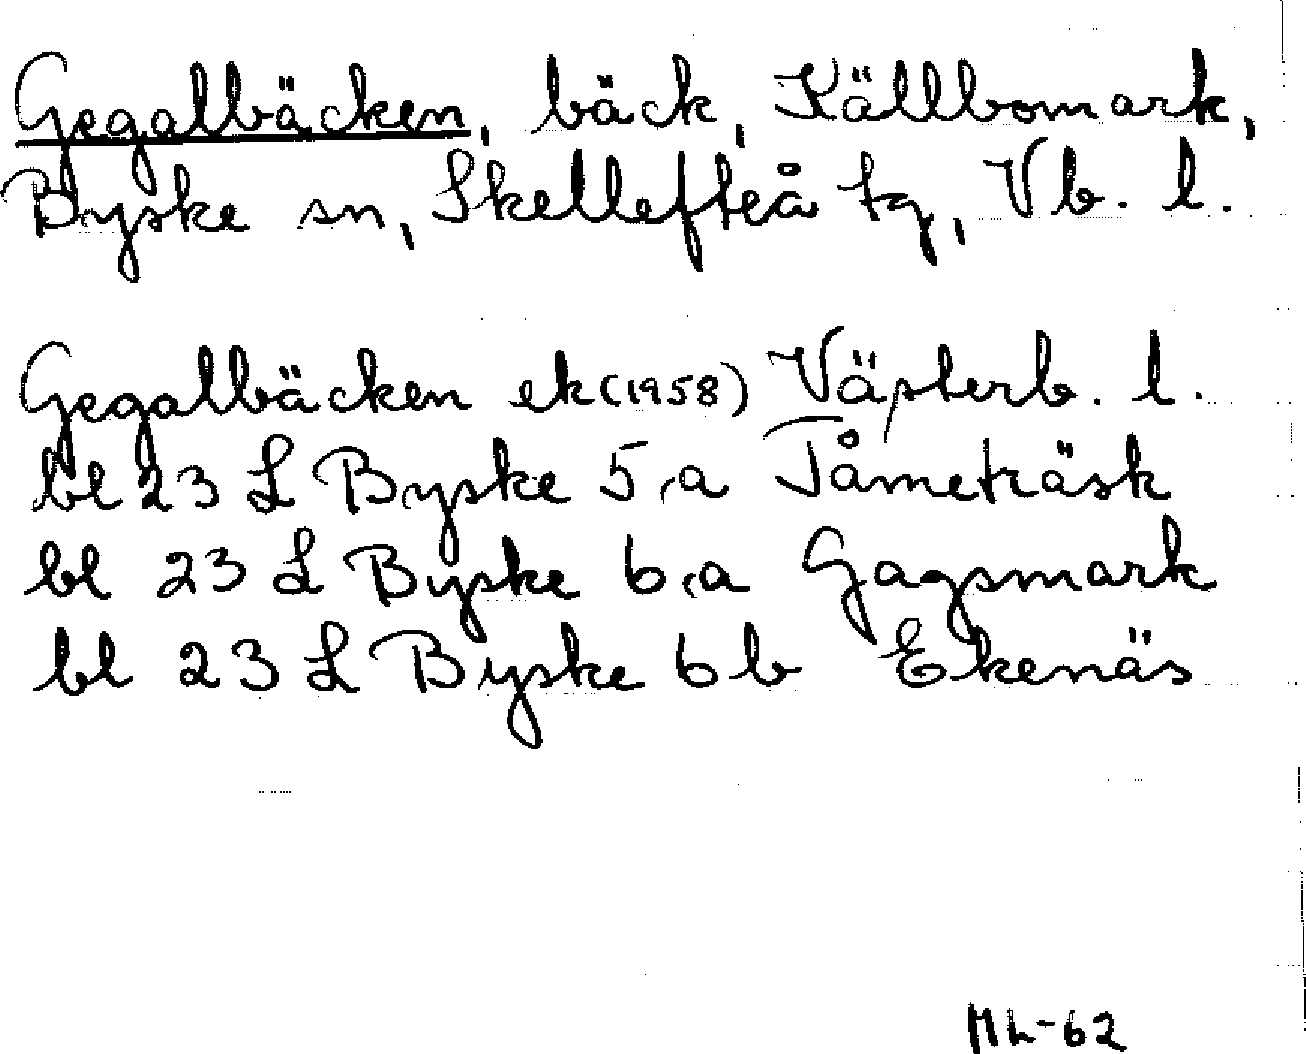 Gegalbäcken, bäck, Källbomark,
Byske sn, Skellefteå tg, Vb. l.
Gegalbäcken ek (1958) Västerb. l.
bl 23 L Byske 5 a Tåmeträsk
bl 23 L Byske 6 a Gagsmark
bl 23 L Byske 6 b Ekenäs
ML-62